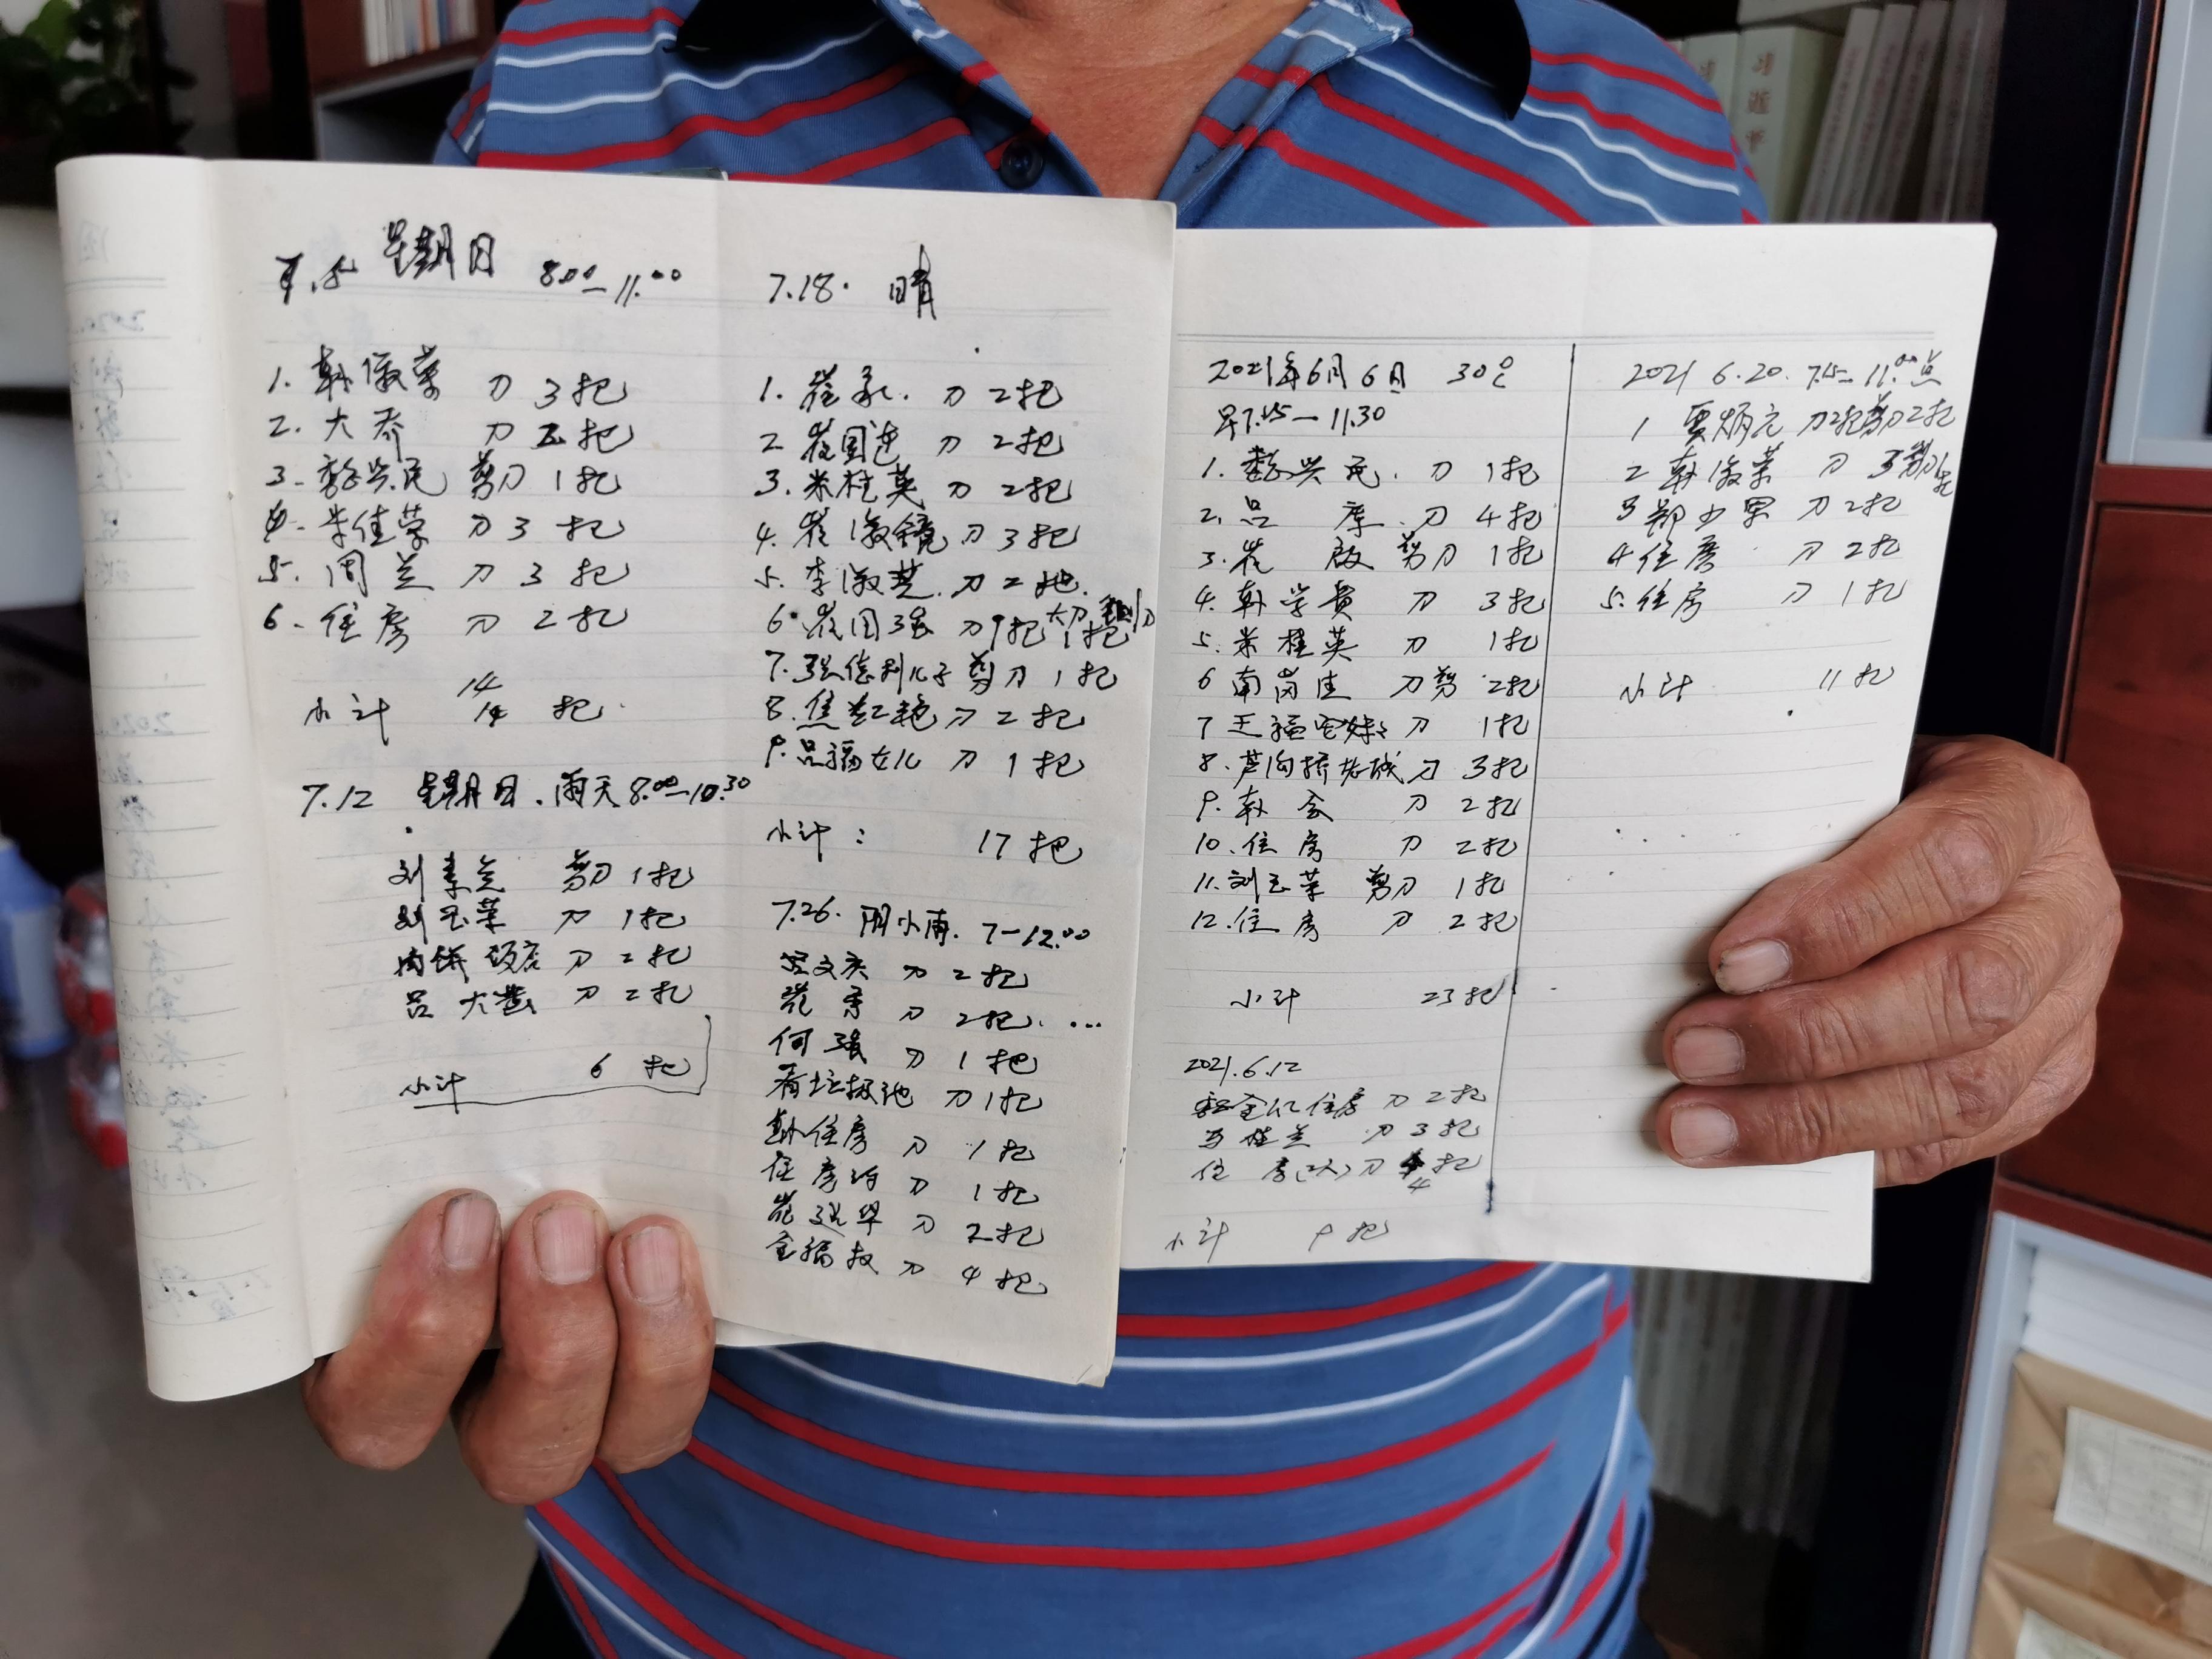 7.5 星期日 8.00-11.00
1. 韩淑荣 刀 3把
2. 大乔 刀 2把
3. 李兴民 剪刀 1把
4. 朱佳荣 刀 3 把
5. 周兰 刀 3 把
6. 住房 刀 2把
小计 14 14 把
7.12 星期日.雨天 8.00-10.30
刘素兰 剪刀 1把
刘玉荣 刀 1把
肉饼饭店 刀 2把
吕大 刀 2把
小计 6 把
7.18. 晴
1. 崔永. 刀 2把
2. 崔国连 刀 2把
3. 米桂英 刀 2把
4. 崔淑镜 刀 3把
5. 李淑芝. 刀 2把.
6. 崔国强 刀 1把
7. 张德利儿子 剪刀 1把
8. 焦红艳 刀 2把
9. 吕福女儿 刀 1把
小计: 17把
7.26. 阴小雨. 7-12.00
文 刀 2把
崔 刀 2把. ...
何强 刀 1把
看垃圾池 刀 1把
韩住房 刀 1把
住房 刀 1把
崔 华 刀 2把
金福 刀 4把
2021年6月6日 30℃
早7.45-11.30
1. 李兴民. 刀 1把
2. 吕 库. 刀 4把
3. 崔 啟 剪刀 1把
4. 韩学贵 刀 3把
5. 米桂英 刀 1把
6 南岗佳 刀剪 2把
7 王福 妹 刀 1把
8. 芦沟桥 刀 3把
9. 韩 会 刀 2把
10. 住房 刀 2把
11. 刘玉荣 剪刀 1把
12. 住房 刀 2把
小计 23把
2021.6.12
金 住房 刀 2把
马桂兰 刀 3把
住 房 刀 4把
小计 9把
2021 6.20. 7.15-11.00点
1 贾炳元 刀2把剪刀2把
2 韩淑荣 刀 3 剪刀1把
3 郑少男 刀 2把
4. 住房 刀 2把
5. 住房 刀 1把
小计 11把